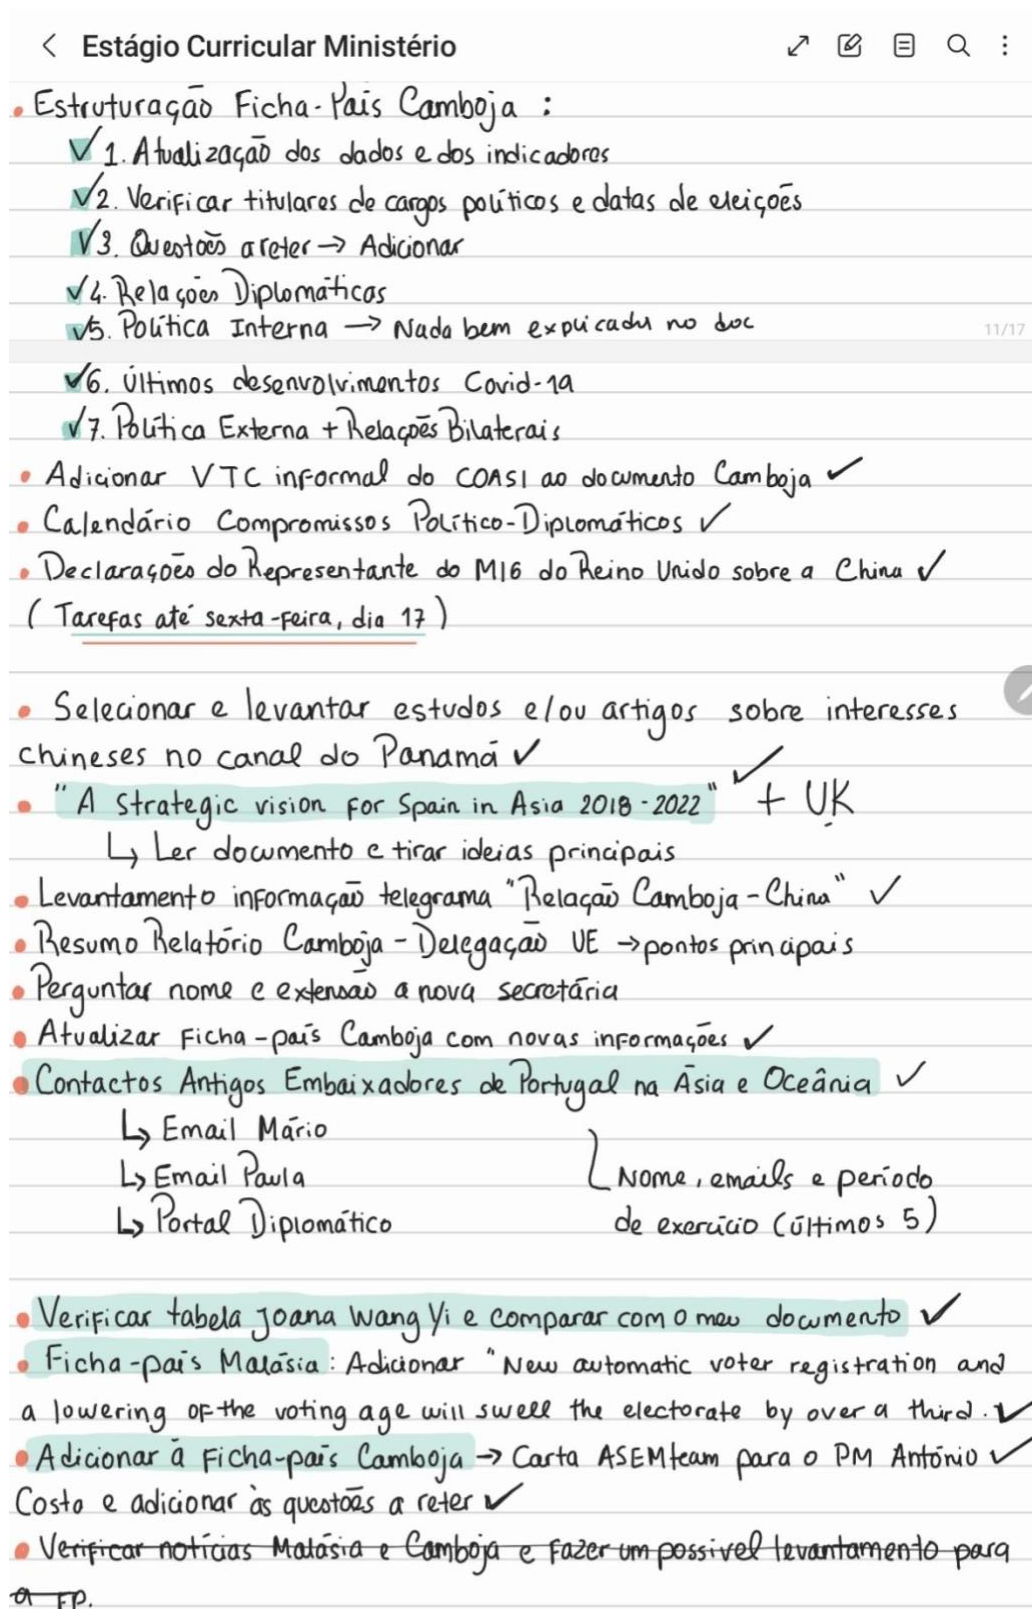 Estágio Curricular Ministério
• Estruturação Ficha-País Camboja :
✓ 1. Atualização dos dados e dos indicadores
✓ 2. Verificar titulares de cargos políticos e datas de eleições
✓ 3. Questões a reter → Adicionar
✓ 4. Relações Diplomáticas
✓ 5. Política Interna → Nada bem explicado no doc
11/17
✓ 6. Últimos desenvolvimentos Covid-19
✓ 7. Política Externa + Relações Bilaterais
• Adicionar VTC informal do COASI ao documento Camboja ✓
• Calendário Compromissos Político-Diplomáticos ✓
• Declarações do Representante do MI6 do Reino Unido sobre a China ✓
( Tarefas até sexta-feira, dia 17 )
• Selecionar e levantar estudos e/ou artigos sobre interesses
chineses no canal do Panamá ✓
• "A strategic vision for Spain in Asia 2018-2022" ✓ + UK
↳ Ler documento e tirar ideias principais
• Levantamento informação telegrama "Relação Camboja-China" ✓
• Resumo Relatório Camboja - Delegação UE → pontos principais
• Perguntar nome e extensão a nova secretária
• Atualizar Ficha-país Camboja com novas informações ✓
• Contactos Antigos Embaixadores de Portugal na Ásia e Oceânia ✓
↳ Email Mário
↳ Email Paula
↳ Portal Diplomático
Nome, emails e período
de exercício (últimos 5)
• Verificar tabela Joana Wang Yi e comparar com o meu documento ✓
• Ficha-país Malásia: Adicionar "New automatic voter registration and
a lowering of the voting age will swell the electorate by over a third. ✓
• Adicionar à Ficha-país Camboja → Carta ASEMteam para o PM António ✓
Costa e adicionar às questões a reter ✓
• Verificar notícias Malásia e Camboja e fazer um possivel levantamento para
a FP.